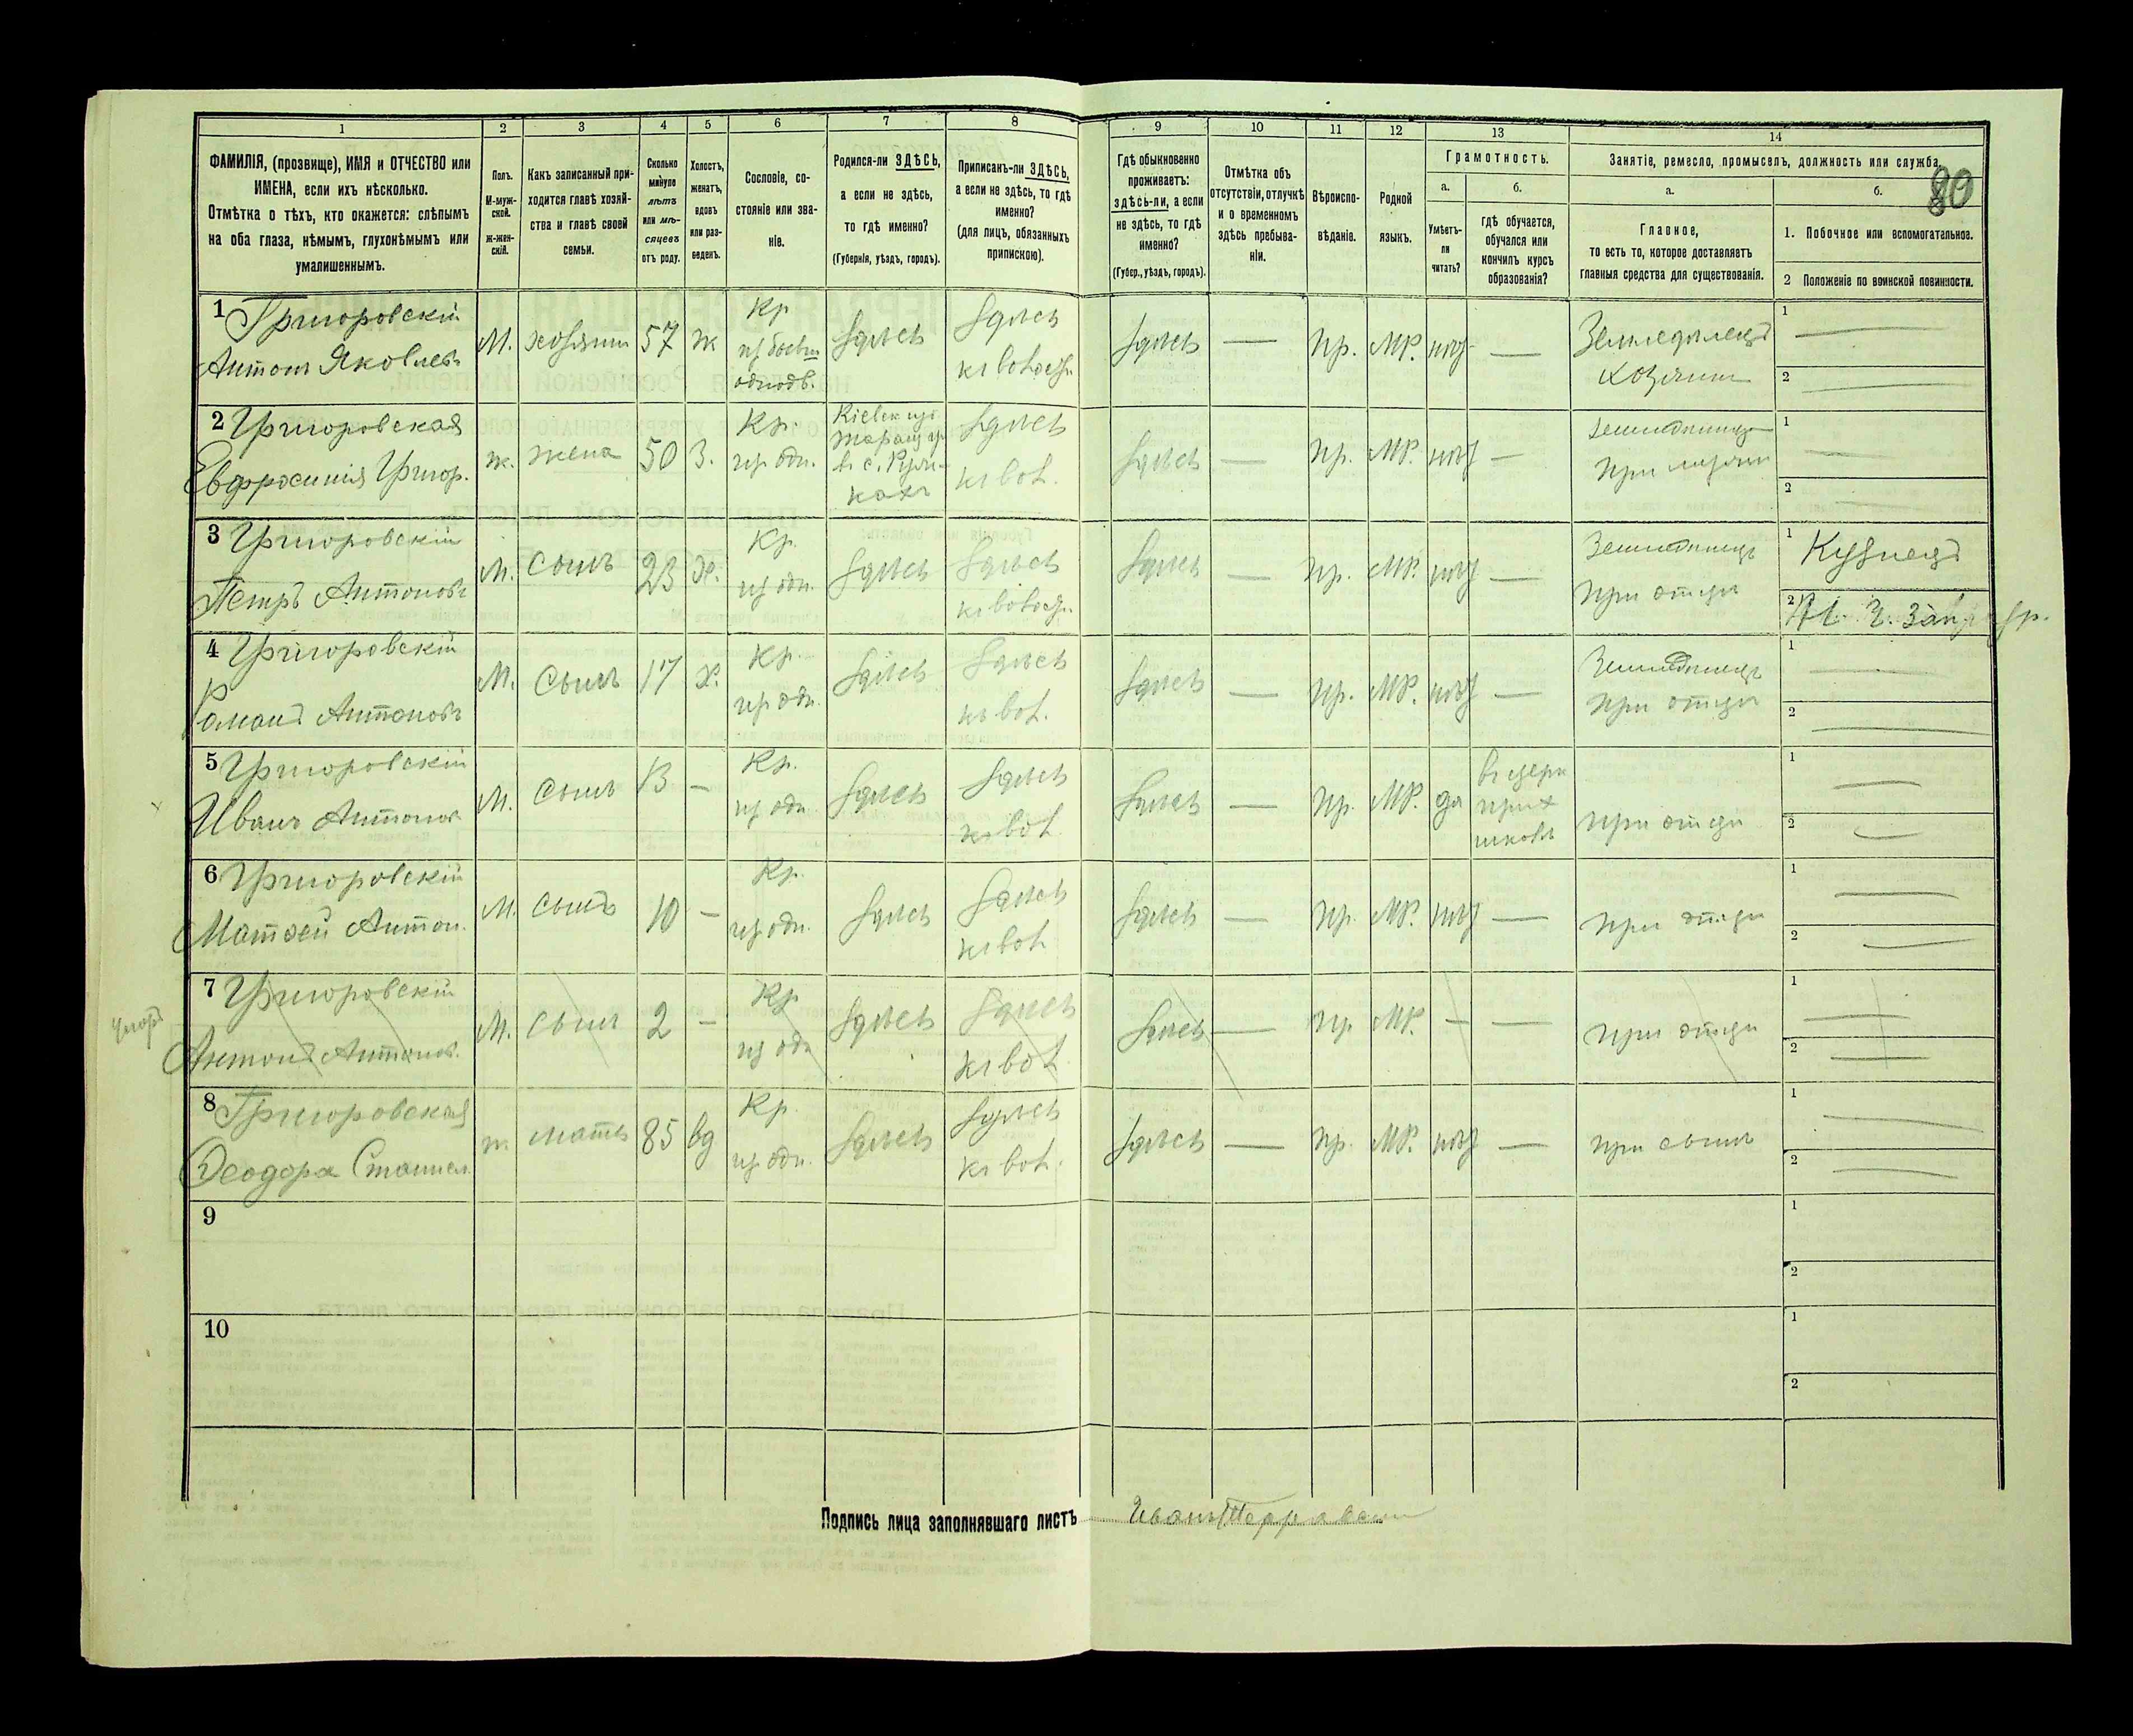 1 2 3 4 5 6 7 8 9 10 11 12 13 14
80
ФАМИЛІЯ, (прозвище), ИМЯ и ОТЧЕСТВО или
ИМЕНА, если ихъ нѣсколько.
Отмѣтка о тѣхъ, кто окажется: слѣпымъ
на оба глаза, нѣмымъ, глухонѣмымъ или
умалишеннымъ.
Полъ.
М-муж-
ской.
ж-жен-
скій.
Какъ записанный при-
ходится главѣ хозяй-
ства и главѣ своей
семьи.
Сколько
минуло
лѣтъ
или мѣ-
сяцевъ
отъ роду.
Холостъ,
женатъ,
вдовъ
или раз-
веденъ.
Сословіе, со-
стояніе или зва-
ніе.
Родился-ли ЗДѢСЬ,
а если не здѣсь,
то гдѣ именно?
(Губернія, уѣздъ, городъ).
Приписанъ-ли ЗДѢСЬ,
а если не здѣсь, то гдѣ
именно?
(для лицъ, обязанныхъ
припискою).
Гдѣ обыкновенно
проживаетъ:
здѣсь-ли, а если
не здѣсь, то гдѣ
именно?
(Губер., уѣздъ, городъ).
Отмѣтка объ
отсутствіи, отлучкѣ
и о временномъ
здѣсь пребыва-
ніи.
Вѣроиспо-
вѣданіе.
Родной
языкъ.
Грамотность.
а.
Умѣетъ-
ли
читать?
б.
гдѣ обучается,
обучался или
кончилъ курсъ
образованія?
Занятіе, ремесло, промыселъ, должность или служба.
а.
Главное,
то есть то, которое доставляетъ
главныя средства для существованія.
б.
1. Побочное или вспомогательное.
2 Положеніе по воинской повинности.
1 Григоровскій
Антонъ Яковлевъ
М. хозяинъ 57 ж
Кр.
изъ бывш
однодв.
здѣсь
здѣсь
здѣсь — пр. МР. нѣтъ —
Земледѣлецъ
хозяинъ
1 —
2 —
2 Григоровская
Евфросинія Григор.
ж. жена 50 З.
Кр.
из одн.
Кіевск
Таращ
здѣсь
здѣсь — пр. МР. нѣтъ —
1 —
2 —
3 Григоровскій
Петръ Антоновъ
М. сынъ 23 Х.
Кр.
из одн.
здѣсь
здѣсь
здѣсь — пр. МР. нѣтъ —
Земледѣлецъ
при отцѣ
1 Кузнецъ
2
4 Григоровскій
Романъ Антоновъ
М. сынъ 17 х.
Кр.
из одн.
здѣсь
здѣсь
здѣсь — пр. МР. нѣтъ —
Земледѣлецъ
при отцѣ
1 —
2 —
5 Григоровскій
Иванъ Антонов
М. сынъ 13 —
Кр.
из одн
здѣсь
здѣсь
здѣсь — пр. МР. да
въ церк
прих
школѣ
при отцѣ
1 —
2 —
6 Григоровскій
Матвей Антон.
М. сынъ 10 —
Кр.
из одн.
здѣсь
здѣсь
здѣсь — пр. МР. нѣтъ —
при отцѣ
1 —
2 —
умеръ
7 Григоровскій
Антонъ Антонов.
М. сынъ 2 —
Кр
из одн
здѣсь
здѣсь
здѣсь — пр МР. — —
при отцѣ
1 —
2 —
8 Григоровская
Феодора Станисл.
ж. мать 85 вд
Кр.
из одн.
здѣсь
здѣсь
здѣсь — пр. МР. нѣтъ —
при сынѣ
1 —
2 —
9
1
2
10
1
2
Подпись лица заполнявшаго листъ Иванъ